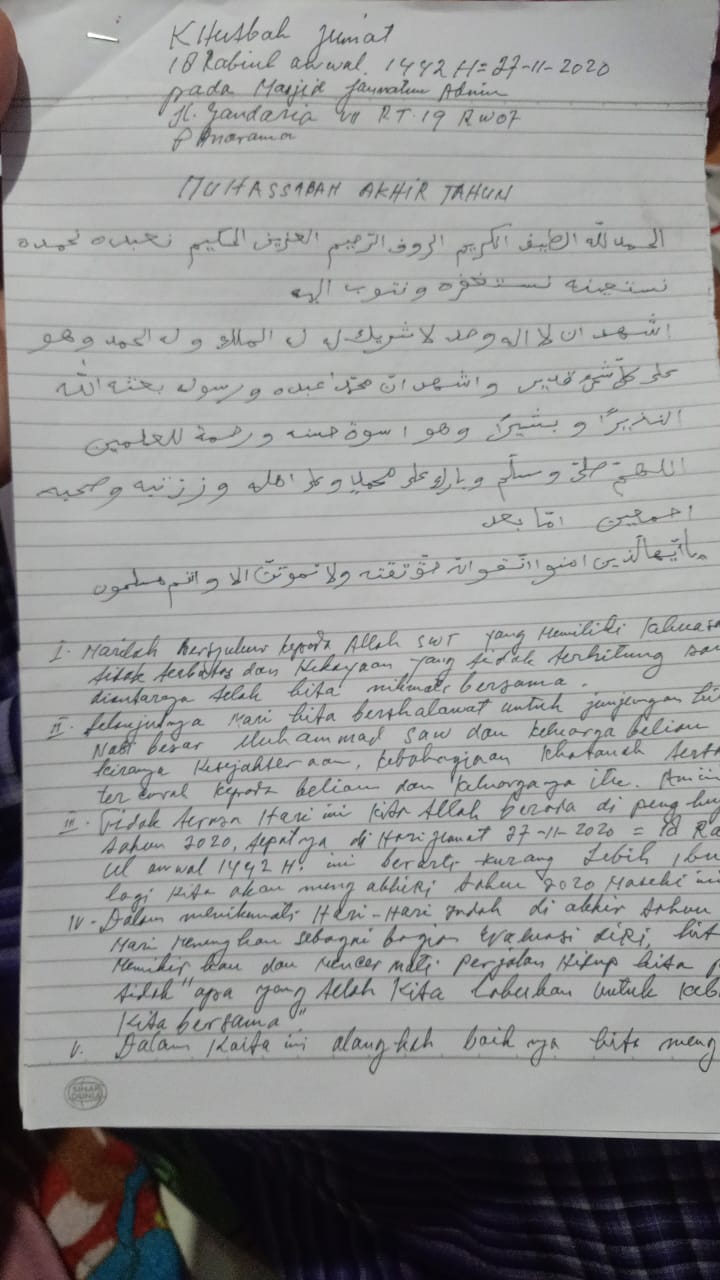 KHutbah Jum'at
18 Rabiul awwal 1442 H = 27-11-2020
pada Masjid Jannatun Adnin
Jl. Gandaria VII RT.19 RW07
Panorama
MUHASSABAH AKHIR TAHUN
الحمد لله الطيف الكريم الروف الرحيم العزيز الحكيم نعبده نحمده
نستعينه نستغفره ونتوب اليه
اشهد ان لا اله وحد لا شريك له له الملك و له الحمد وهو
على كل شيئ قدير واشهد ان محمدا عبده ورسوله بعثه الله
النذيرًا و بشيرًا وهو اسوة حسنه ورحمة للعلمين
اللهم صلى وسلم وبارك على محمد وعلى اهله وذرتيه وصحبه
اجمعين امّا بعد
يا ايها الذين امنوا اتقوالله حق تقته ولا تموتن الا وانتم مسلمون
I. Marilah Bersyukur kepada Allah SWT yang Memiliki
tidak terbatas dan Kekayaan yang tidak terhitung
diantaranya telah kita nikmati bersama.
II. Selanjutnya Mari kita bershalawat untuk junjungan
Nabi besar Muhammad saw dan keluarga beliau
kiranya Kesejahteraan, kebahagiaan
kepada beliau dan keluarganya itu. Amin
III. Tidak terasa Hari ini Kita berada di
tahun 2020, tepatnya di Hari Jumat 27-11-2020 = 18 Ra
ul awwal 1442 H. ini berarti kurang Lebih
lagi Kita akan mengakhiri tahun 2020 Masehi ini
IV. Dalam menikmati Hari-Hari indah di akhir tahun
Mari Menungkan sebagai bagian Evaluasi diri,
Memikirkan dan Mencermati perjalan Hidup kita
tidak "apa yang telah Kita Lakukan untuk
Kita bersama"
V. Dalam Kaita ini alangkah baik nya kita meng
SINAR
DUNIA